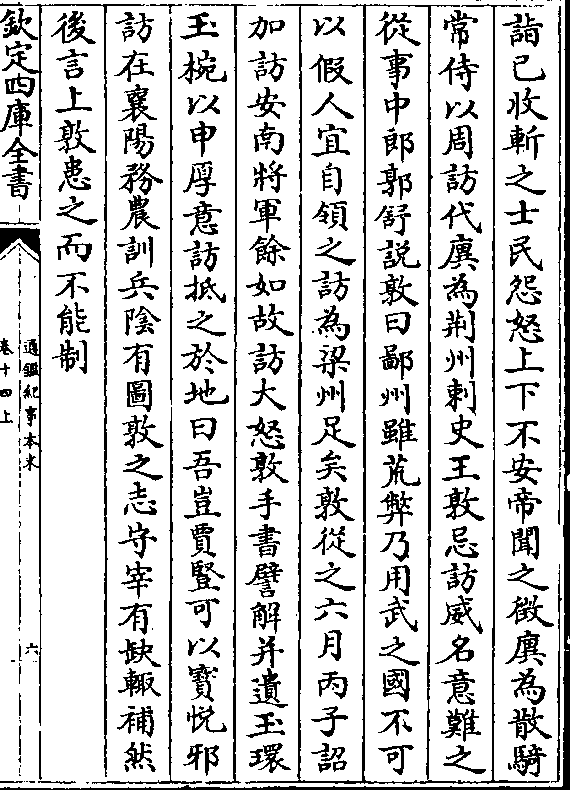 詣已收斬之士民怨怒上下不安帝聞之徴廙為散騎
常侍以周訪代廙為荆州刺史王敦忌訪威名意難之
從事中郎郭舒説敦曰鄙州雖荒弊乃用武之國不可
以假人宜自領之訪為梁州足矣敦從之六月丙子詔
加訪安南將軍餘如故訪大怒敦手書譬解并遺玉環
玉椀以申厚意訪抵之於地曰吾豈賈豎可以寳悦邪
訪在襄陽務農訓兵陰有圖敦之志守宰有缺輙補然
後言上敦患之而不能制
欽定四庫全書
通鑑紀事本末
卷十四上
六